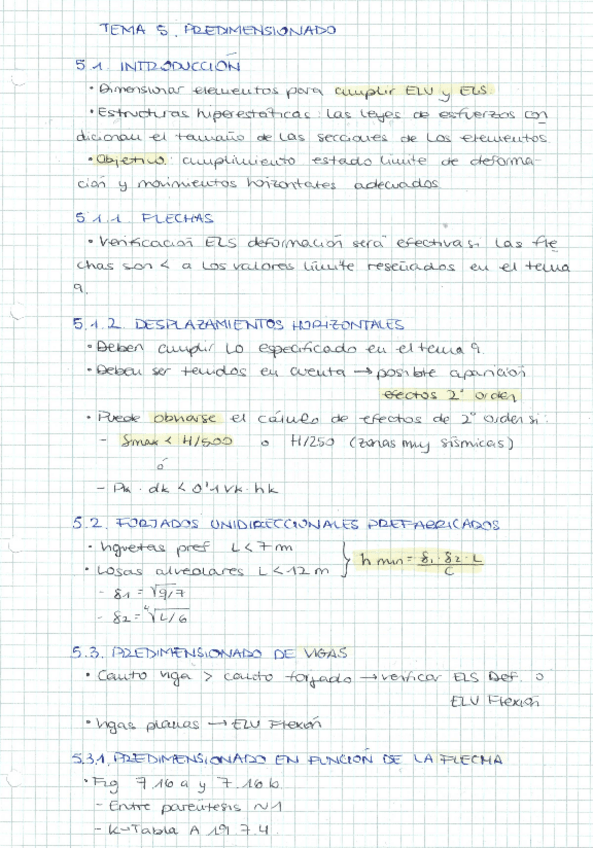 TEMA 5. PREDIMENSIONADO
5.1. INTRODUCCIÓN
• Dimensionar elementos para cumplir ELU y ELS.
• Estructuras hiperestáticas: las leyes de esfuerzos con
dicionan el tamaño de las secciones de los elementos.
• Objetivo: cumplimiento estado límite de deforma-
ción y movimientos horizontales adecuados.
5.1.1. FLECHAS
• Verificación ELS deformación será efectiva si las fle
chas son < a los valores límite reseñados en el tema
9.
5.1.2. DESPLAZAMIENTOS HORIZONTALES
• Deben cumplir lo especificado en el tema 9.
• Deben ser tenidos en cuenta → posible aparición
efectos 2º orden
• Puede obviarse el cálculo de efectos de 2º orden si:
- δmax < H/500 o H/250 (zonas muy sísmicas)
ó
- Pk · dk < 0'1 Vk · hk
5.2. FORJADOS UNIDIRECCIONALES PREFABRICADOS
• Viguetas pref L < 7 m
• Losas alveolares L < 12 m } h min = δ1 · δ2 · L / C
- δ1 = √q/7
- δ2 = ⁴√L/6
5.3. PREDIMENSIONADO DE VIGAS
• Canto viga > canto forjado → verificar ELS Def. o
ELU Flexión
• Vigas planas → ELU Flexión
5.3.1. PREDIMENSIONADO EN FUNCIÓN DE LA FLECHA
• Fig 7.16 a y 7.16 b.
- Entre paréntesis ~1
- K → Tabla A 19.7.4.